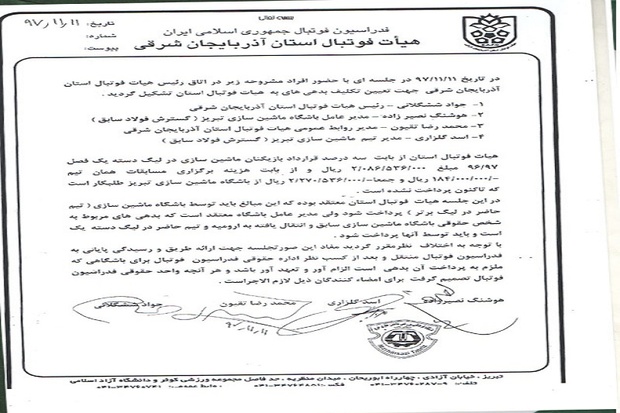 بسمه تعالی
فدراسیون فوتبال جمهوری اسلامی ایران
هیأت فوتبال استان آذربایجان شرقی
تاریخ: ۹۷/۱۱/۱۱
شماره:
پیوست:
در تاریخ ۹۷/۱۱/۱۱ در جلسه ای با حضور افراد مشروحه زیر در اتاق رئیس هیات فوتبال استان
آذربایجان شرقی جهت تعیین تکلیف بدهی های به هیات فوتبال استان تشکیل گردید .
۱- جواد ششگلانی - رئیس هیات فوتبال استان آذربایجان شرقی
۲- هوشنگ نصیر زاده - مدیر عامل باشگاه ماشین سازی تبریز ( گسترش فولاد سابق )
۳- محمد رضا تقیون - مدیر روابط عمومی هیات فوتبال استان آذربایجان شرقی
۴- اسد گلزاری - مدیر تیم ماشین سازی ( گسترش فولاد سابق )
هیات فوتبال استان از بابت سه درصد قرارداد بازیکنان ماشین سازی در لیگ دسته یک فصل
۹۶/۹۷ مبلغ ۲/۰۸۶/۵۳۶/۰۰۰ ریال و از بابت هزینه برگزاری مسابقات همان تیم
۱۸۴/۰۰۰/۰۰۰/- ریال و جمعا-/۲/۲۷۰/۵۳۶/۰۰۰ ریال از باشگاه ماشین سازی تبریز طلبکار است
که تاکنون پرداخت نشده است .
در این جلسه هیات فوتبال استان معتقد بوده که این مبالغ باید توسط باشگاه ماشین سازی ( تیم
حاضر در لیگ برتر ) پرداخت شود ولی مدیر عامل باشگاه معتقد است که بدهی های مربوط به
شخص حقوقی باشگاه ماشین سازی سابق و انتقال یافته به ارومیه و تیم حاضر در لیگ دسته یک
است و باید توسط آنها پرداخت شود .
با توجه به اختلاف نظرمقرر گردید مفاد این صورتجلسه جهت ارائه طریق و رسیدگی پایانی به
فدراسیون فوتبال منتقل و بعد از کسب نظر اداره حقوقی فدراسیون فوتبال برای باشگاهی که
ملزم به پرداخت آن بدهی است الزام آور و تعهد آور باشد و هر آنچه واحد حقوقی فدراسیون
فوتبال تصمیم گرفت برای امضاء کنندگان ذیل لازم الاجراست .
هوشنگ نصیرزاده اسد گلزاری محمد رضا تقیون جواد ششگلانی
۹۷/۱۱/۱۱
تبریز، خیابان آزادی، چهارراه ابوریحان، میدان منظریه، حد فاصل مجموعه ورزشی کوثر و دانشگاه آزاد اسلامی